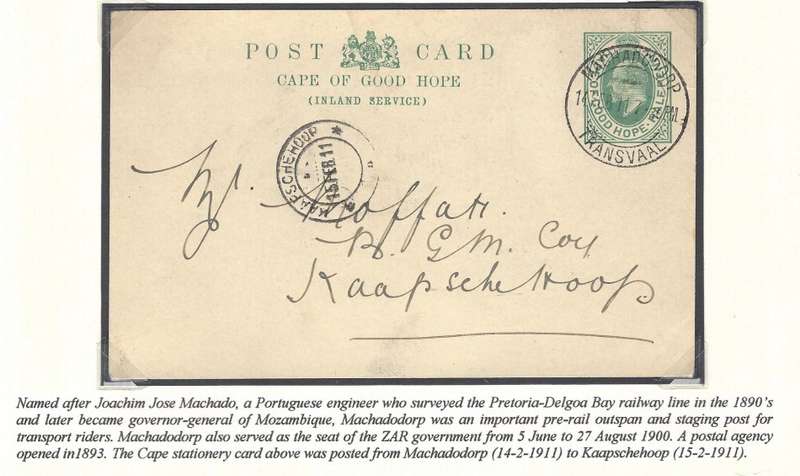 POST CARD
CAPE OF GOOD HOPE
(INLAND SERVICE)
MACHADODORP
14
PM
TRANSVAAL
OF GOOD HOPE · HALF
KAAPSCHEHOOP
15 FEB 11
Moffat.
G. M. Coy
Kaapsche Hoop
Named after Joachim Jose Machado, a Portuguese engineer who surveyed the Pretoria-Delgoa Bay railway line in the 1890's
and later became governor-general of Mozambique, Machadodorp was an important pre-rail outspan and staging post for
transport riders. Machadodorp also served as the seat of the ZAR government from 5 June to 27 August 1900. A postal agency
opened in1893. The Cape stationery card above was posted from Machadodorp (14-2-1911) to Kaapschehoop (15-2-1911).